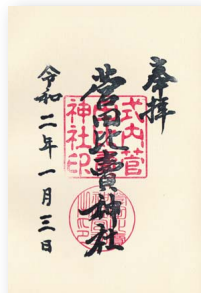 奉拝
菅田比賣神社
式内菅
田比賣
神社印
令和二年一月三日